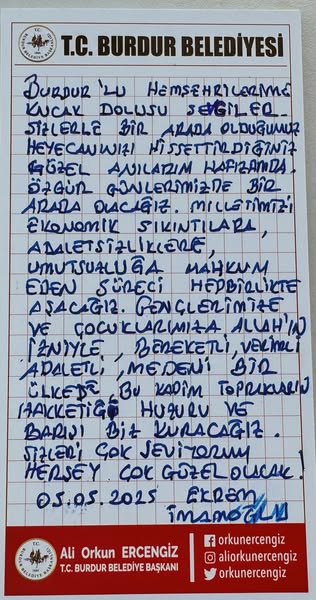 T.C. BURDUR BELEDİYESİ
BURDUR'LU HEMŞEHRİLERİME
KUCAK DOLUSU SEVGİLER.
SİZLERLE BİR ARADA OLDUĞUMUZ
HEYECANINIZI HİSSETTİRDİĞİNİZ
GÜZEL ANILARIM HAFIZAMDA.
ÖZGÜR GÜNLERİMİZDE BİR
ARADA OLACAĞIZ. MİLLETİMİZİ
EKONOMİK SIKINTILARA,
ADALETSİZLİKLERE,
UMUTSUZLUĞA MAHKUM
EDEN SÜRECİ HEP BİRLİKTE
AŞACAĞIZ. GENÇLERİMİZE
VE ÇOCUKLARIMIZA ALLAH'IN
İZNİYLE, BEREKETLİ, VERİMLİ
ADALETLİ, MEDENİ BİR
ÜLKEDE, BU KADİM TOPRAKLARIN
HAKKETİĞİ HUZURU VE
BARIŞI BİZ KURACAĞIZ.
SİZLERİ ÇOK SEVİYORUM
HERŞEY ÇOK GÜZEL OLACAK!
05.05.2025 EKREM
İMAMOĞLU
Ali Orkun ERCENGİZ
T.C. BURDUR BELEDİYE BAŞKANI
orkunercengiz
aliorkunercengiz
orkunercengiz